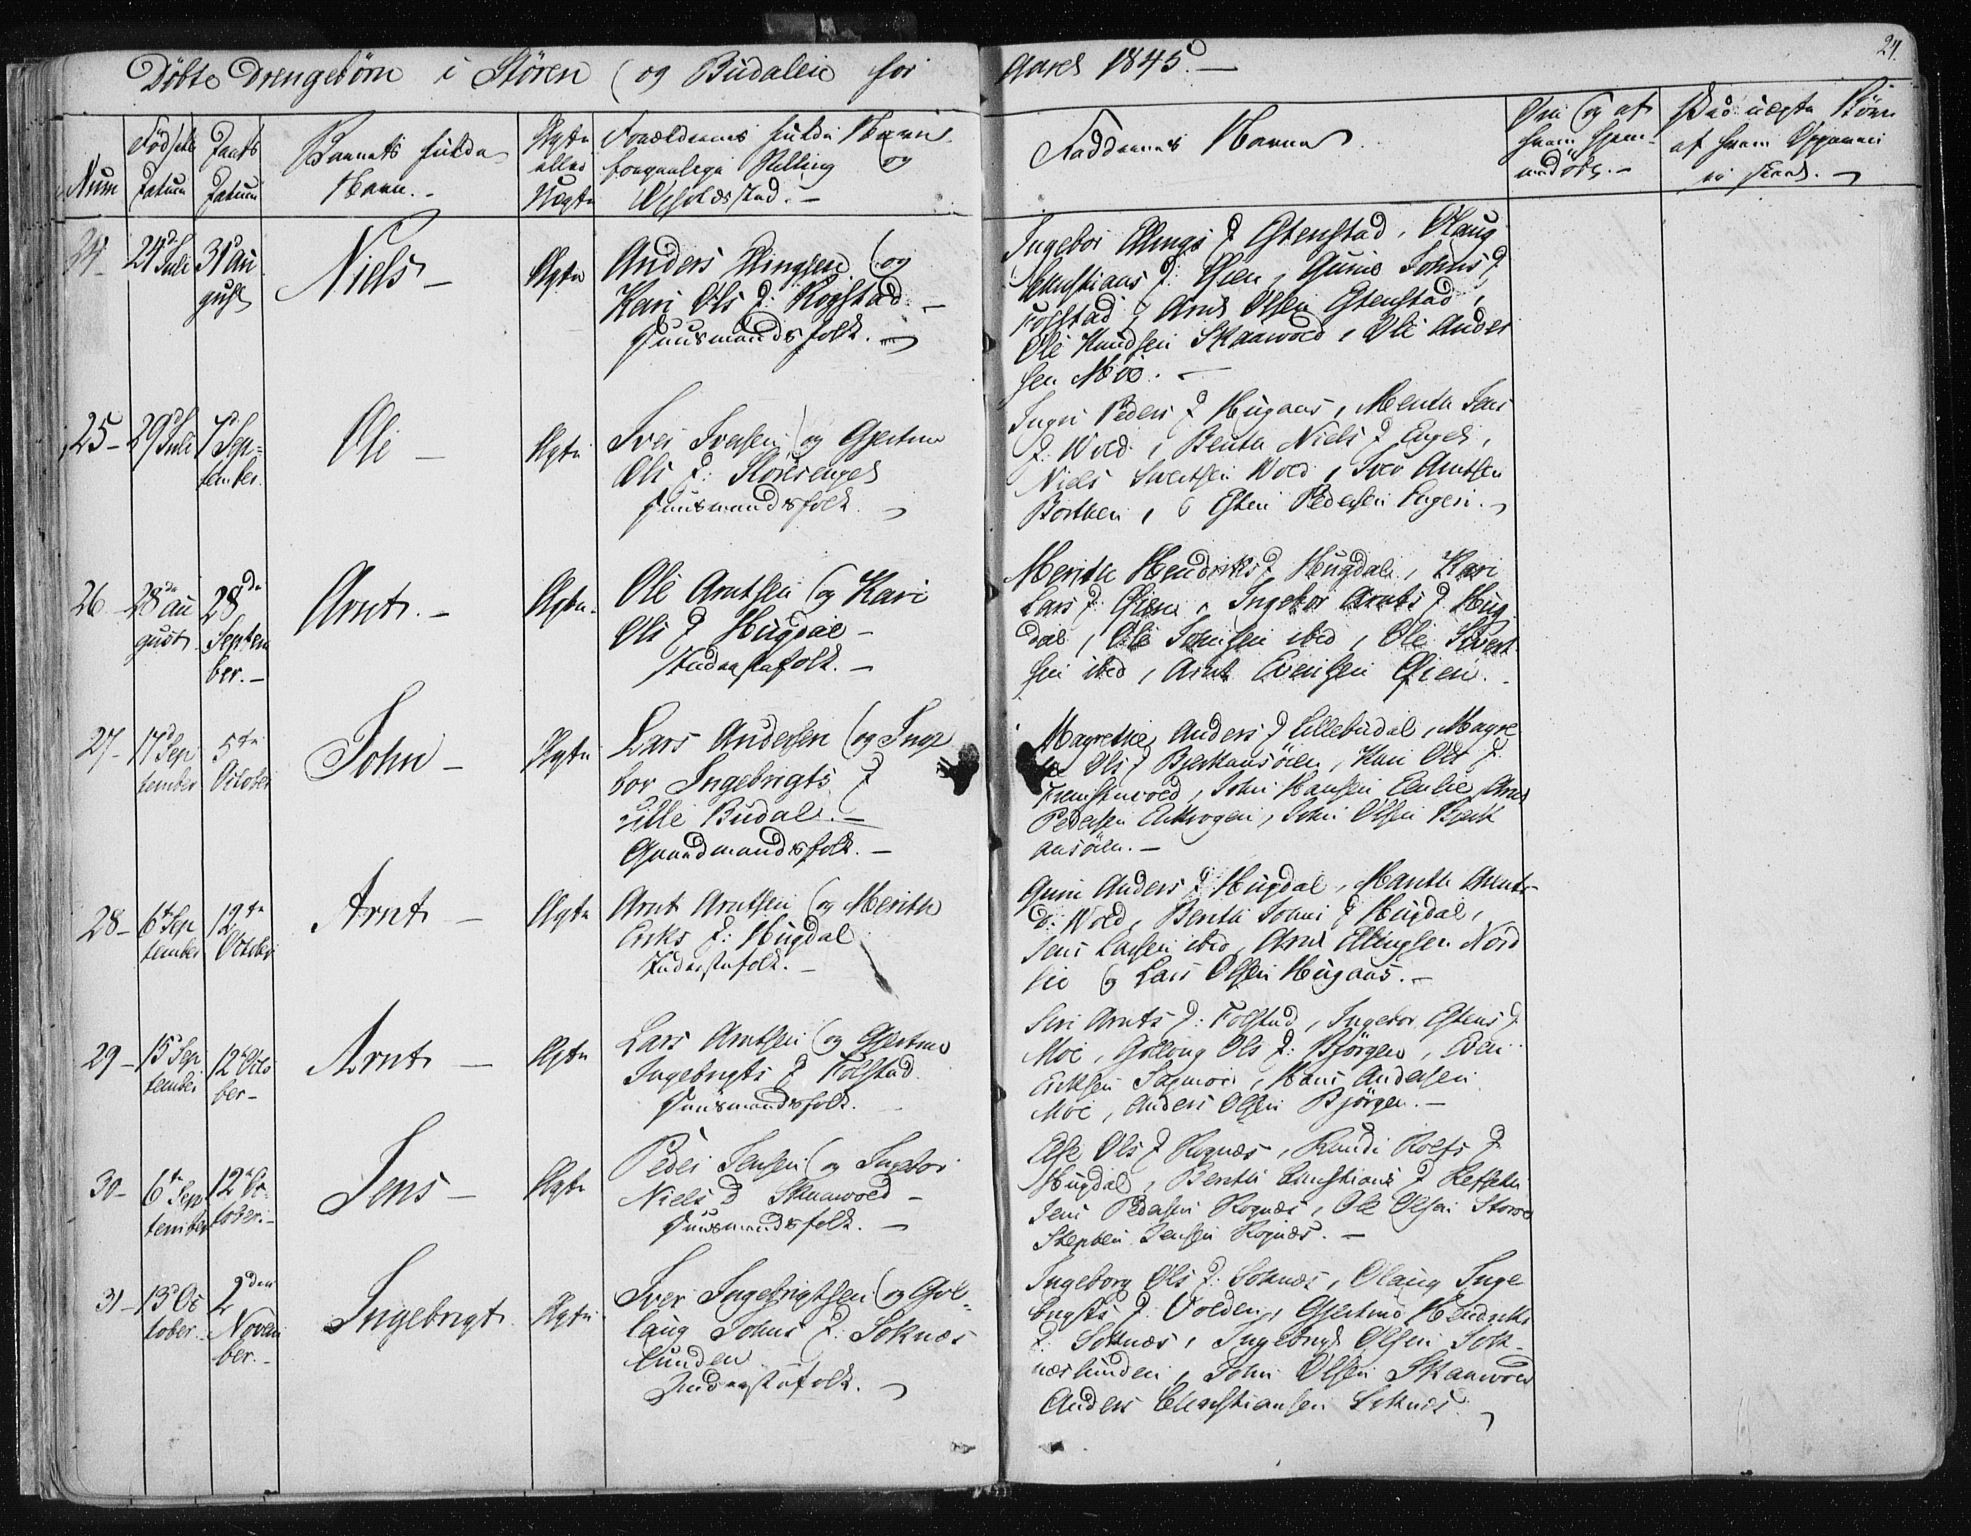 Döbte Drengebörn i Stören og Budalen for Aaret 1845.
24.
Num
Födsels Datum
Daabs Datum
Barnets fulde Navn.
Ægte eller Uægte
Forældrenes fulde Navn
borgerlige Stilling og
Opholdssted.
Faddernes Navne
24 24 Juli 31 August Niels Ægte
Anders Ellingsen og
Kari Ols D: Rogstad
Huusmandsfolk.
Ingebor Ellings D Estenstad, Olaug
Christians D: Øien, Guruo Johns D
Folstad, Arnt Olsen Estenstad,
Ole Knudsen Skaarvold, Ole Ander
sen Moe.
25 29 Juli 7 September Ole Ægte
Iver Iversen og Gjertrue
Ols D: Storrenget
Huusmandsfolk.
Ingri Peders D Hugaas, Mereth Lars
D. Wold, Beret Niels D Enget,
Niels Sivertsen Wold, Iver Arntsen
Borthen, Esten Pedersen Engen.
26 28 August 28de September Arnt Ægte
Ole Arntsen og Kari
Ols D Hugdal
Inderstefolk.
Merith Hendriks D Hugdal, Kari
Lars D. Øien, Ingebor Arnts D Hug
dal, Ole Jensen ibid, Ole Sivert
sen ibid, Arnt Evensen Øien.
27 17 September 5te October John Ægte
Lars Andersen og Inge
bor Ingebrigts D
Lille Budal.
Gaardmandsfolk.
Magrethe Anders D Lillebudal, Magre
Ols D Bjerkansöien, Kari Ols D.
John Hansen Enlie, Arnt
Pedersen, John Olsen Bjerk
ansöien.
28 6te September 12te October Arnt Ægte
Arnt Arntsen og Merith
Eriks D: Hugdal
Inderstefolk.
Guru Anders D Hugdal, Mareth Arnts
D: Wold, Berith Johns D Hugdal,
Jens Larsen ibid, Arnt Ellingsen Nord
lie og Lars Olsen Hugaas.
29 15 September 12 October Arnt Ægte
Lars Arntsen og Gjertrue
Ingebrigts D Folstad.
Huusmandsfolk.
Siri Arnts D: Folstad, Ingebor Estens D
Moe, Gollaug Ols D: Björgen, Even
Eriksen Sagmoe, Hans Andersen
Moe, Anders Olsen Björgen.
30 6te September 12 October Jens Ægte
Peder Jensen og Ingebor
Niels D Skaarvold
Huusmandsfolk.
Else Ols D Rognæs, Randi Rolfs D
Hugdal, Berith Christians D
Jens Pedersen Rognæs, Ole Olsen Storro
Stephen Jensen Rognæs.
31 13 October 2den November Ingebrigt Ægte
Iver Ingebrigtsen og Gol
laug Johns D: Soknæs
lunden
Inderstefolk.
Ingeborg Ols D: Soknæs, Olaug Inge
brigts D: Volden, Gjertrud Hendriks
D: Soknæs, Ingebrigt Olsen Sok
næslunden, John Olsen Skaarvold
Anders Christiansen Soknæs.